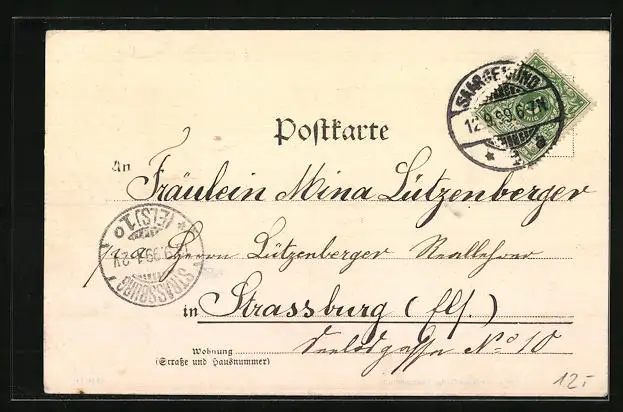 SAARGEMÜND
12.9.99.6-7N
* a
Postkarte
An
Fräulein Mina Lützenberger
Herrn Lützenberger Reallehrer
STRASSBURG
* (ELS) 1 o
in Strassburg (Els.)
No 10
Wohnung
(Straße und Hausnummer)
12.-